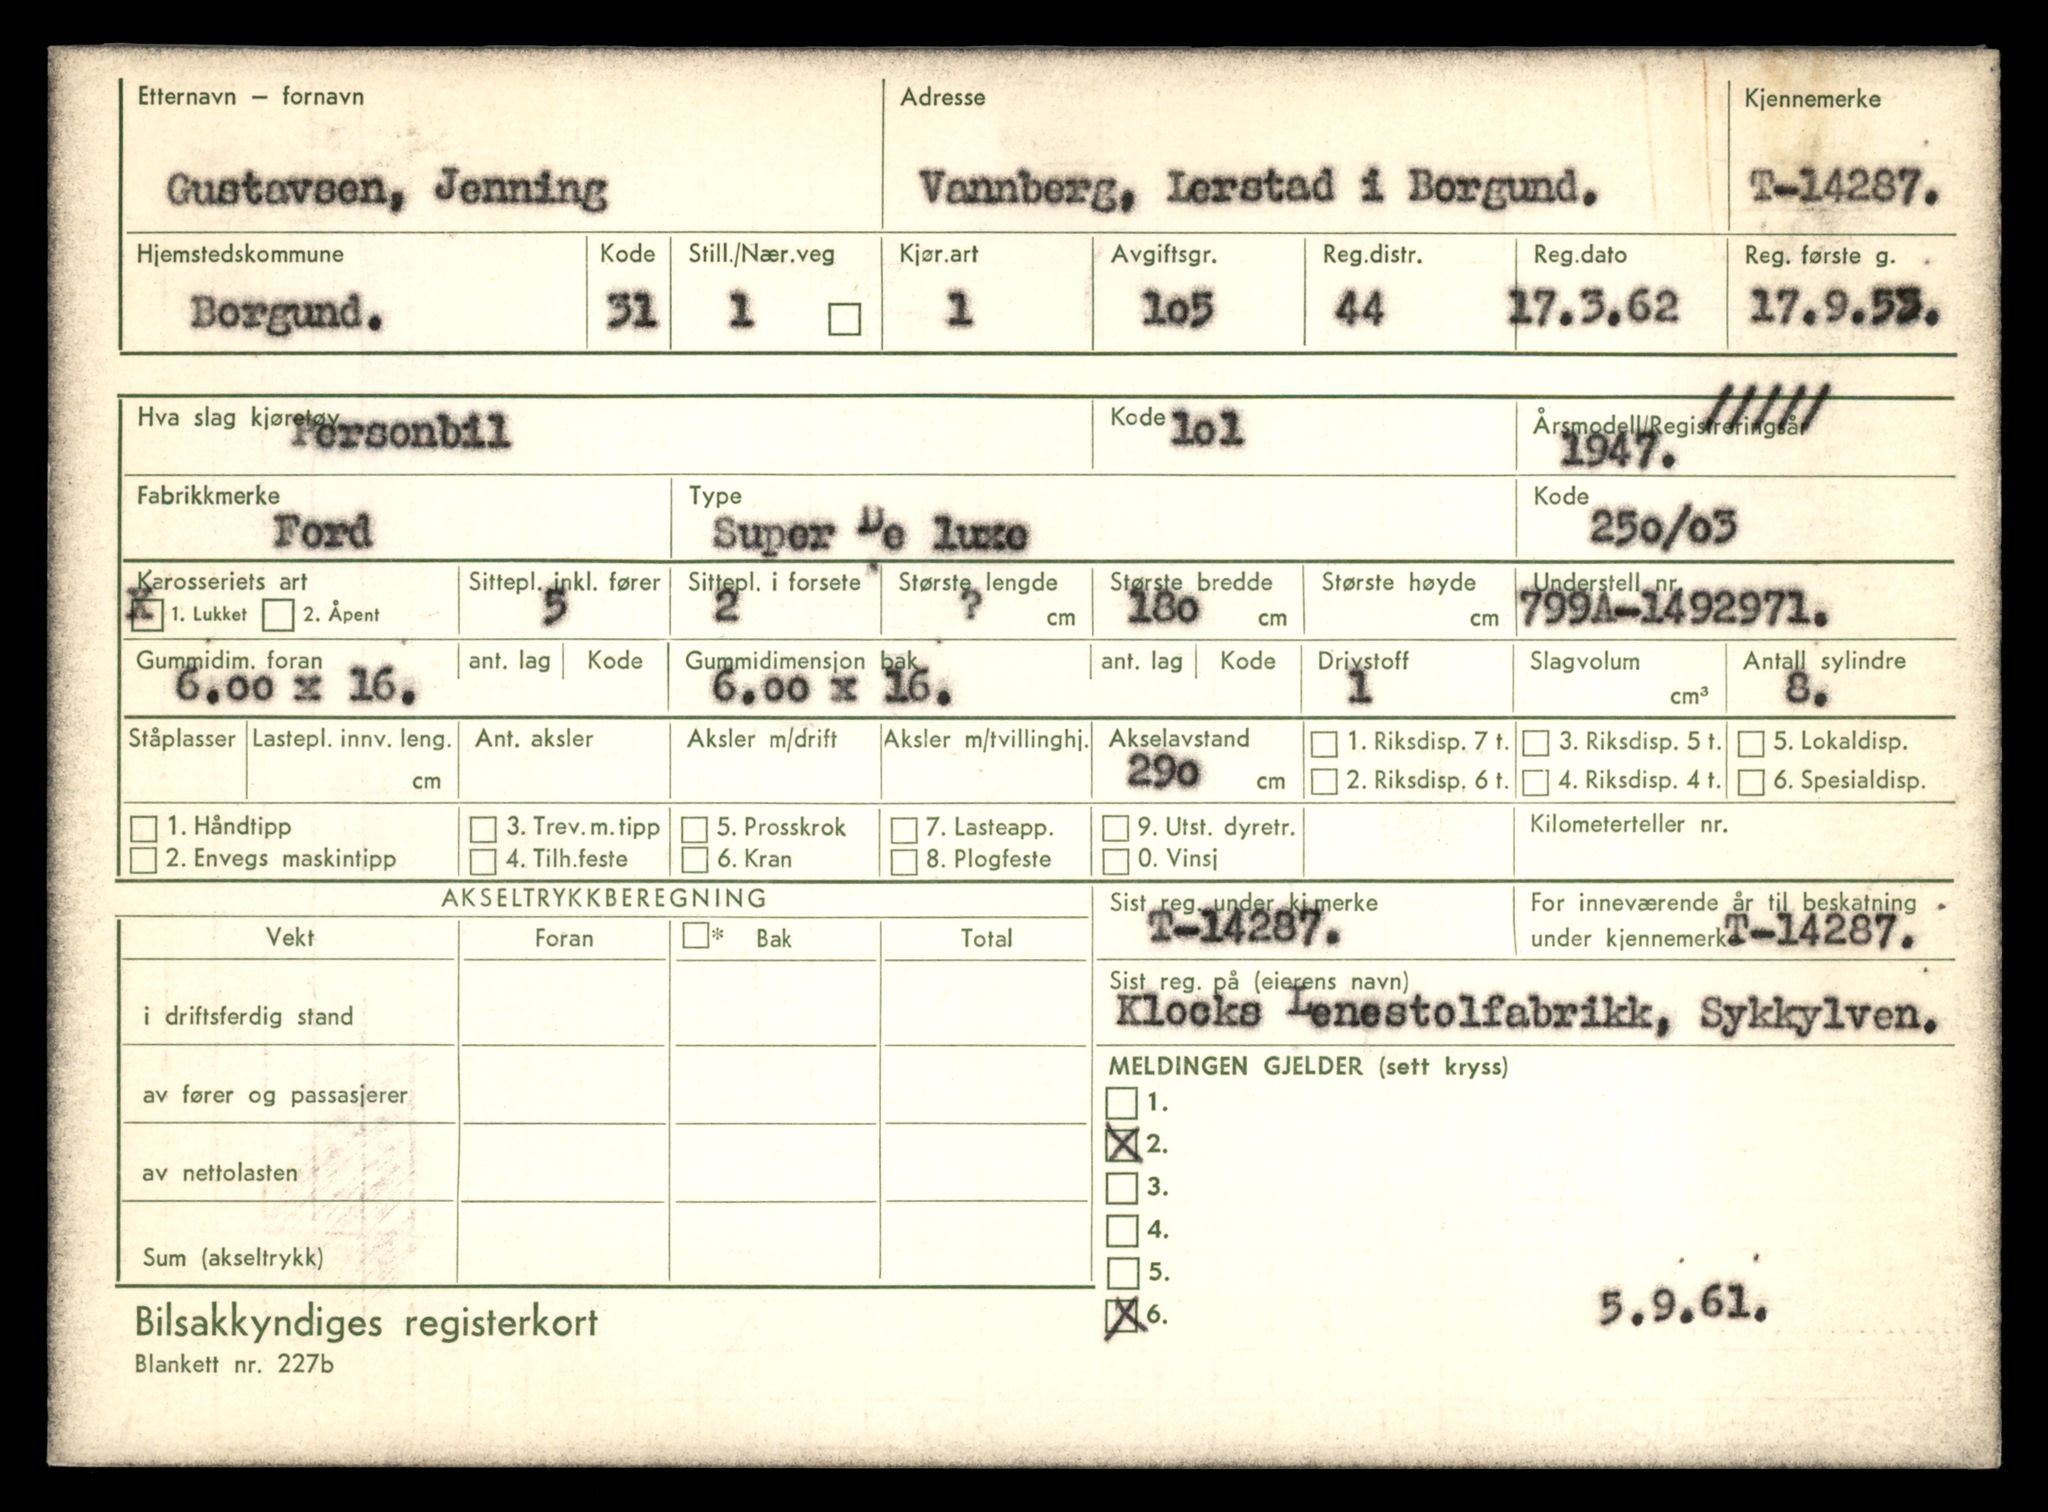 Etternavn – fornavn Adresse Kjennemerke
Gustavsen, Jenning Vannberg, Lerstad i Borgund. T-14287.
Hjemstedskommune Kode Still./Nær.veg Kjør.art Avgiftsgr. Reg.distr. Reg.dato Reg. første g.
Borgund. 31 1 1 lo5 44 17.3.62 17.9.53.
Hva slag kjøretøy Personbil Kode lol Årsmodell/Registreringsår /////
1947.
Fabrikkmerke Type Kode
Ford Super De luxe 25o/o3
Karosseriets art Sittepl. inkl. fører Sittepl. i forsete Største lengde Største bredde Største høyde Understell nr.
X 1. Lukket 2. Åpent 5 2 ? cm 18o cm cm 799A-1492971.
Gummidim. foran ant. lag Kode Gummidimensjon bak ant. lag Kode Drivstoff Slagvolum Antall sylindre
6.oo x 16. 6.oo x 16. 1 cm³ 8.
Ståplasser Lastepl. innv. leng. Ant. aksler Aksler m/drift Aksler m/tvillinghj. Akselavstand 1. Riksdisp. 7 t. 3. Riksdisp. 5 t. 5. Lokaldisp.
cm 29o cm 2. Riksdisp. 6 t. 4. Riksdisp. 4 t. 6. Spesialdisp.
1. Håndtipp 3. Trev. m. tipp 5. Prosskrok 7. Lasteapp. 9. Utst. dyretr. Kilometerteller nr.
2. Envegs maskintipp 4. Tilh.feste 6. Kran 8. Plogfeste 0. Vinsj
AKSELTRYKKBEREGNING Sist reg. under kj.merke For inneværende år til beskatning
Vekt Foran * Bak Total T-14287. under kjennemerke T-14287.
Sist reg. på (eierens navn)
i driftsferdig stand Klocks Lenestolfabrikk, Sykkylven.
MELDINGEN GJELDER (sett kryss)
av fører og passasjerer 1.
X 2.
av nettolasten 3.
4.
Sum (akseltrykk) 5.
X 6. 5.9.61.
Bilsakkyndiges registerkort
Blankett nr. 227b